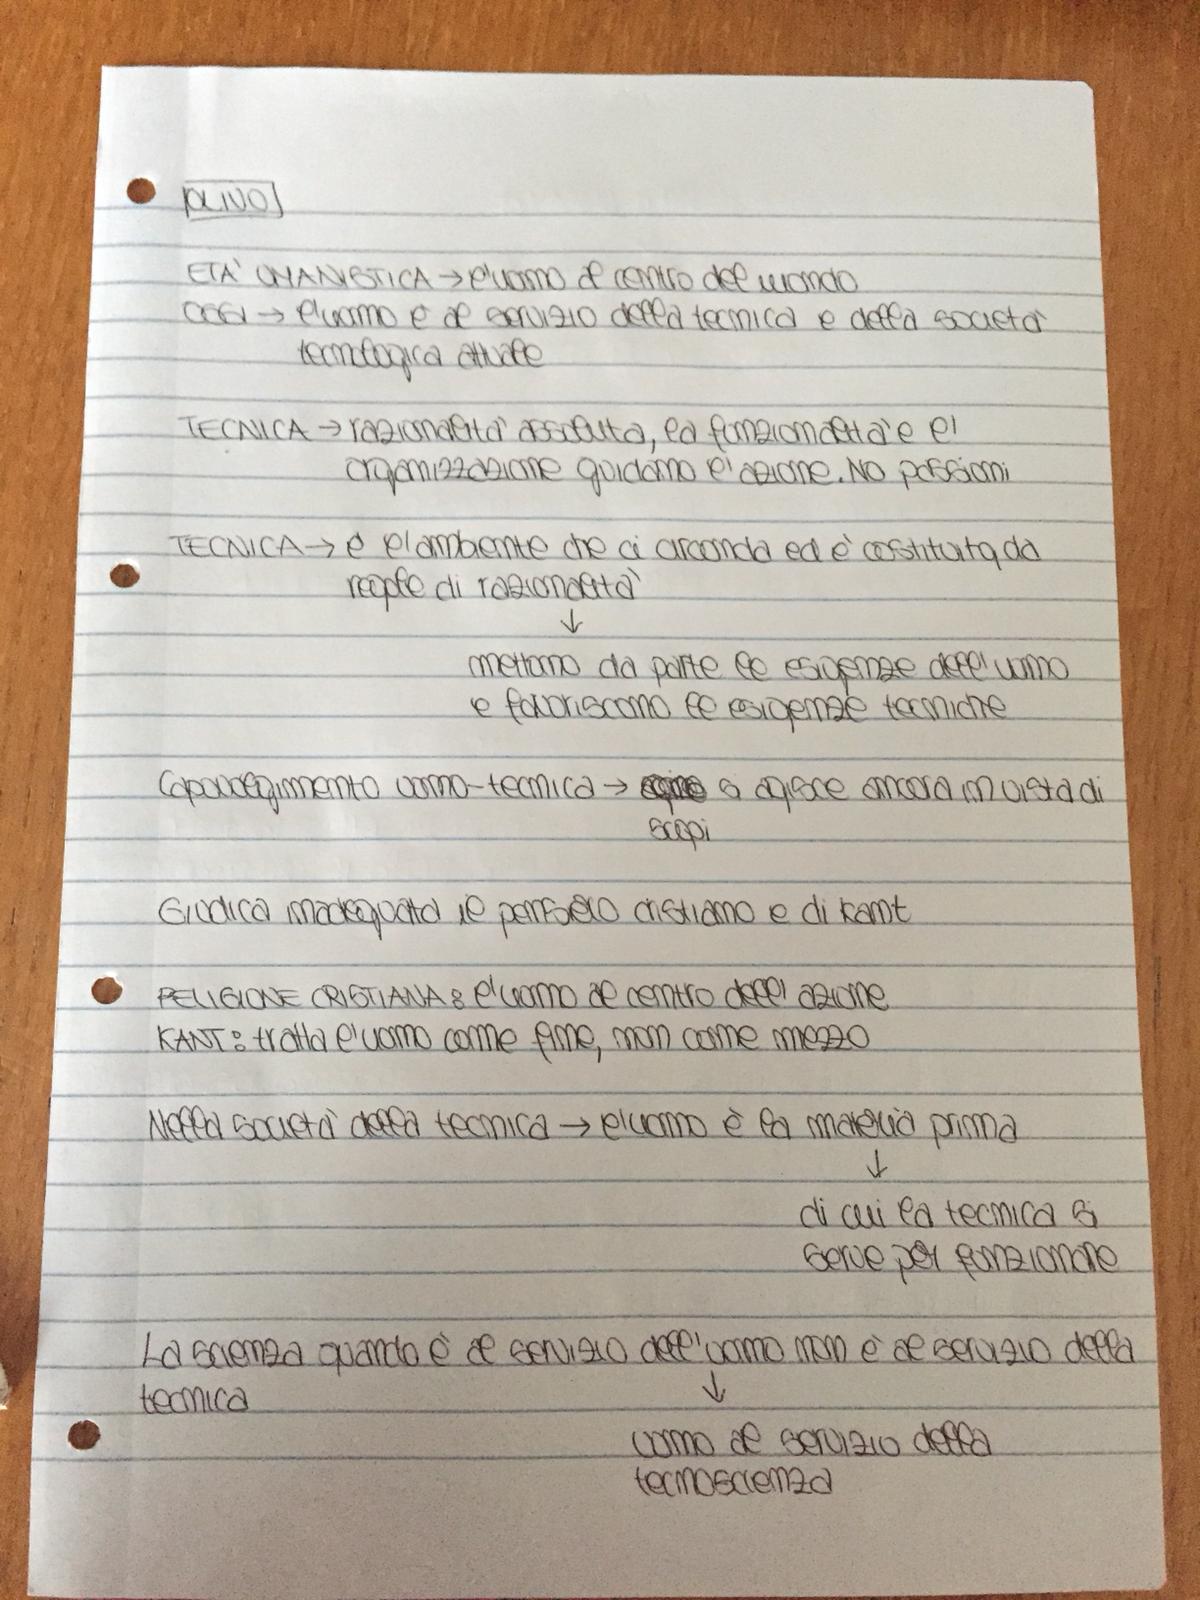 OLIVO
ETA' UMANISTICA → l'uomo al centro del mondo
OGGI → l'uomo è al servizio della tecnica e della società
tecnologica attuale
TECNICA → razionalità assoluta, la funzionalità e l'
organizzazione guidano l'azione. No passioni
TECNICA → è l'ambiente che ci circonda ed è costituita da
regole di razionalità
↓
mettono da parte le esigenze dell'uomo
e favoriscono le esigenze tecniche
Capovolgimento uomo-tecnica → si agisce ancora in vista di
scopi
Giudica inadeguato il pensiero cristiano e di Kant
RELIGIONE CRISTIANA: l'uomo al centro dell'azione
KANT: tratta l'uomo come fine, non come mezzo
Nella società della tecnica → l'uomo è la materia prima
↓
di cui la tecnica si
serve per funzionare
La scienza quando è al servizio dell'uomo non è al servizio della
tecnica
↓
uomo al servizio della
tecnoscienza